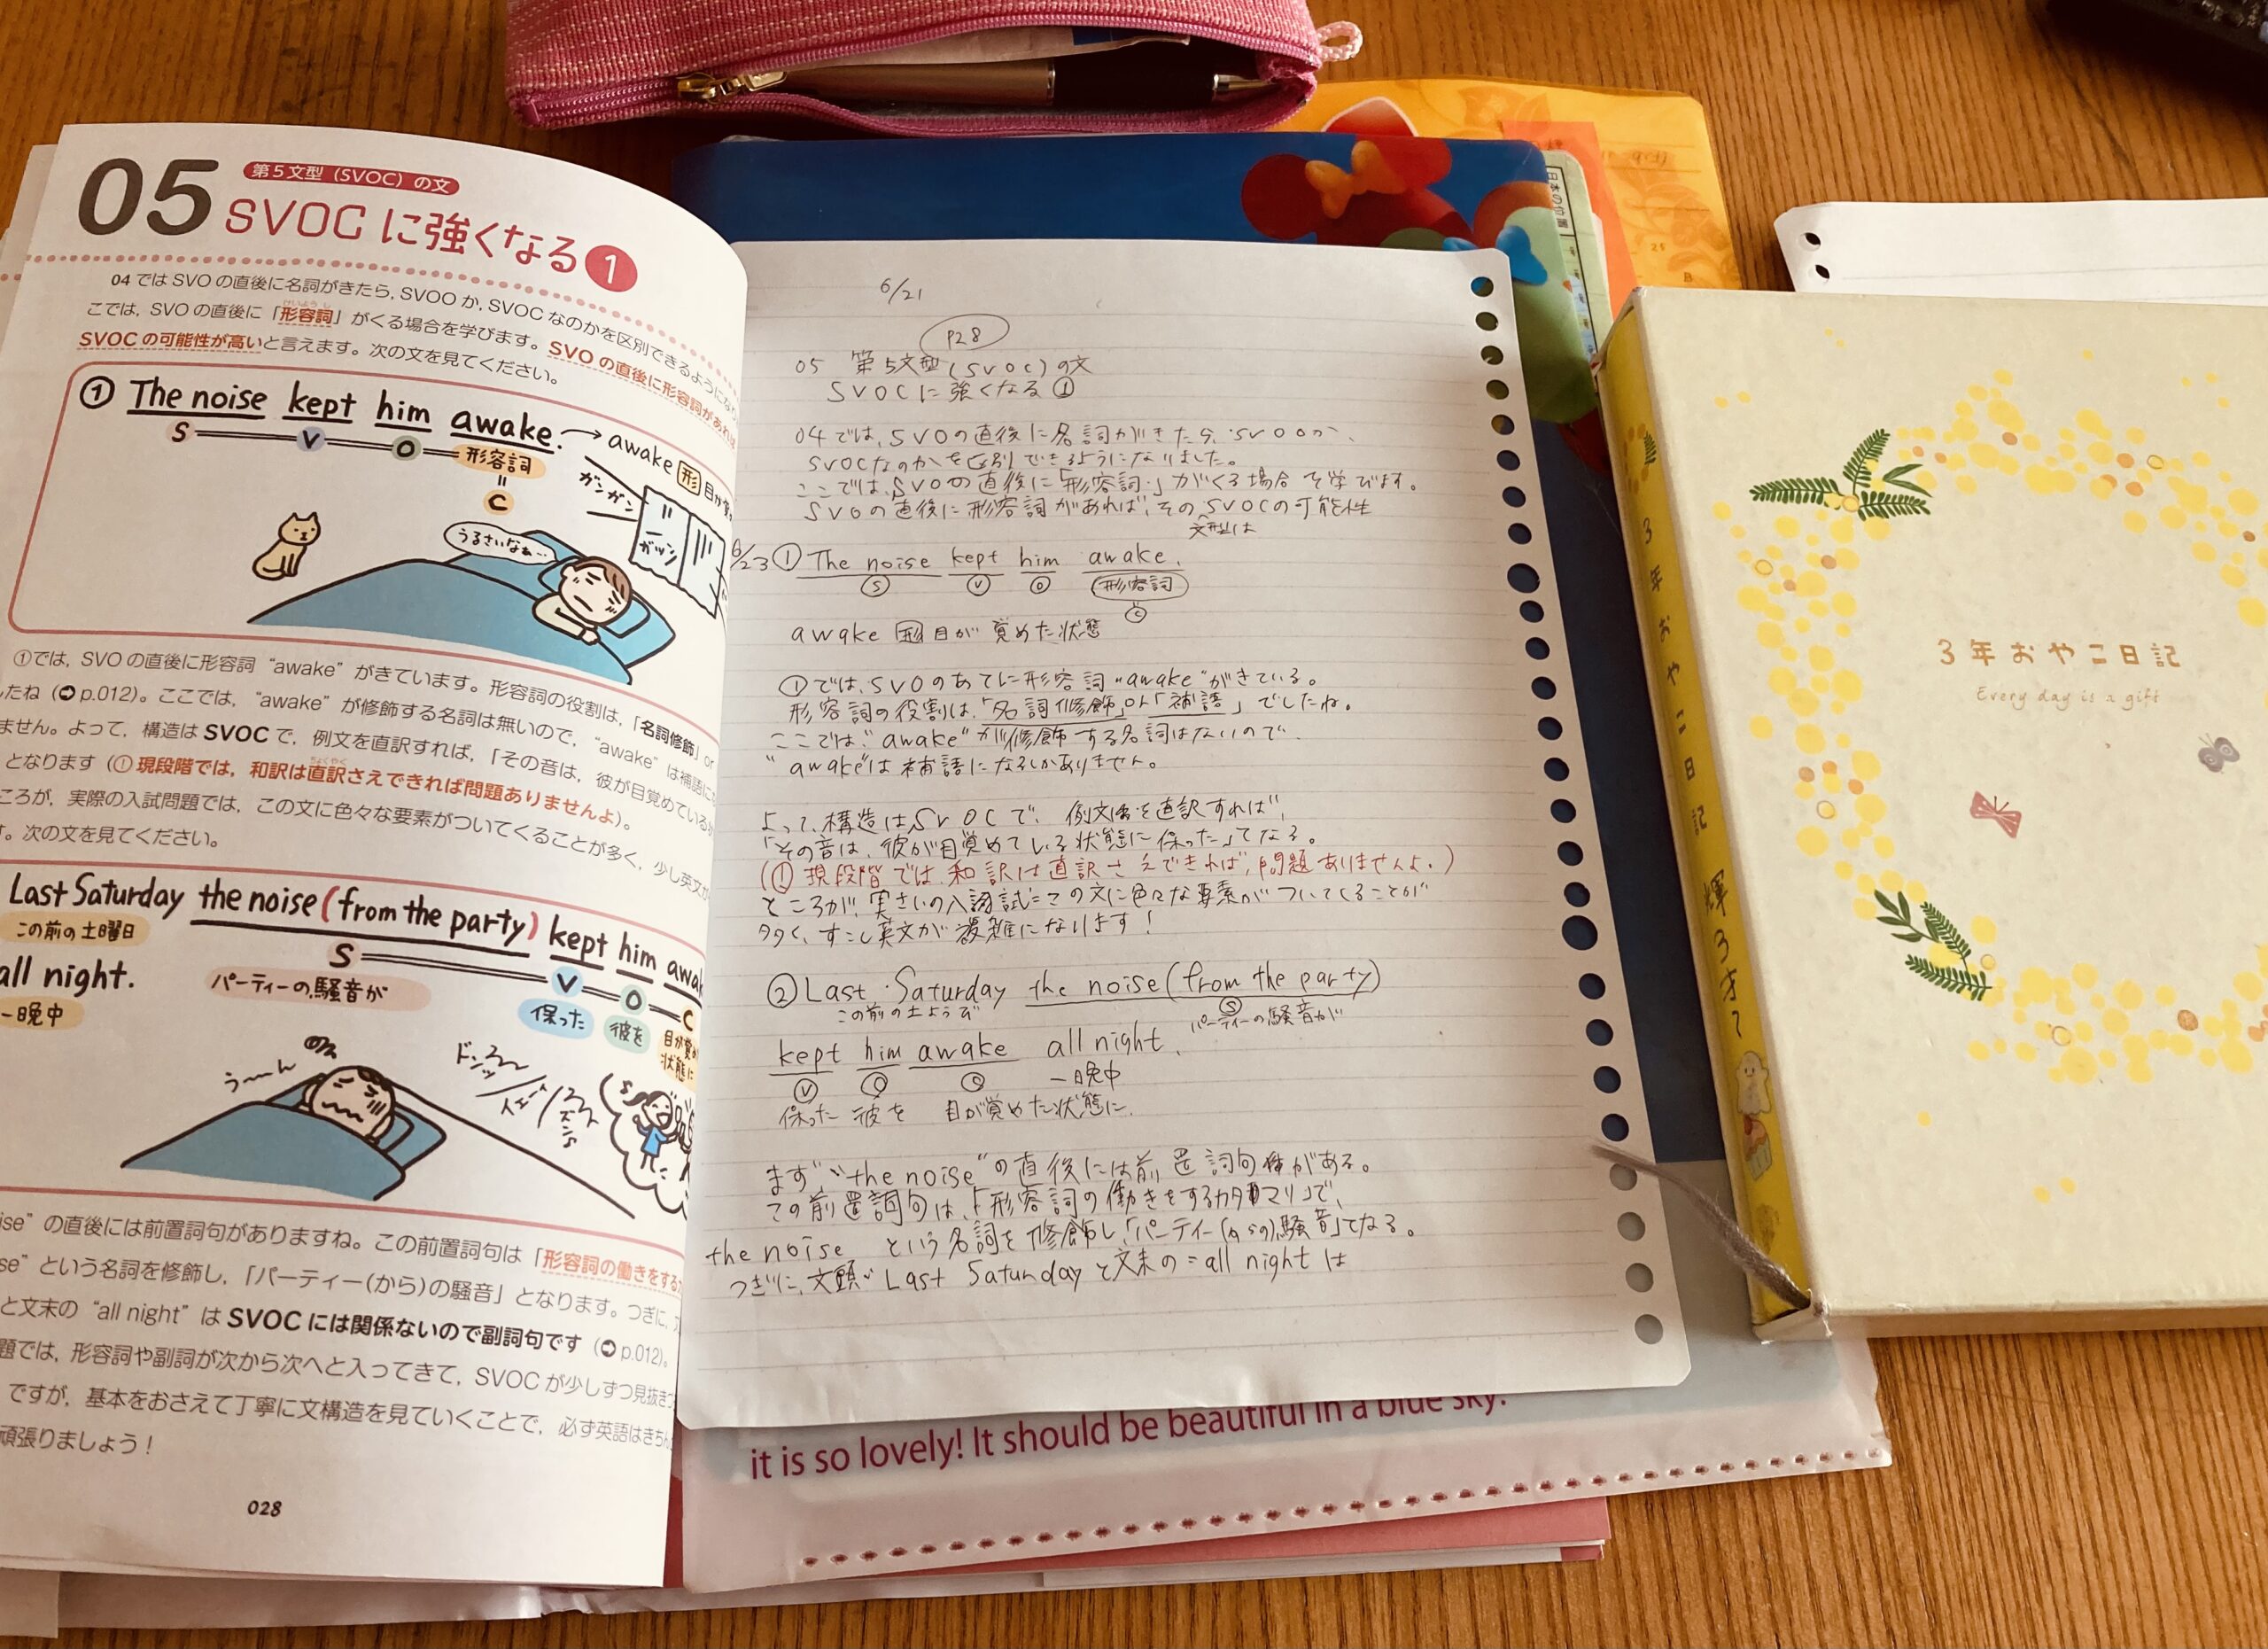 05
第5文型（SVOC）の文
SVOCに強くなる1
04ではSVOの直後に名詞がきたら, SVOOか, SVOCなのかを区別できるようにな
こでは, SVOの直後に「形容詞」がくる場合を学びます。SVOの直後に形容詞があれば
けいようし
SVOCの可能性が高いと言えます。次の文を見てください。
① The noise kept him awake. → awake 形 目が覚
S V O 形容詞
=
C
ガンガン
ガッツン
うるさいなぁ…
①では, SVOの直後に形容詞 “awake” がきています。形容詞の役割は,「名詞修飾」or
たね（➡p.012）。ここでは, “awake” が修飾する名詞は無いので, “awake” は補語に
ません。よって, 構造はSVOCで, 例文を直訳すれば,「その音は, 彼が目覚めている
ちょくやく
となります（①現段階では, 和訳は直訳さえできれば問題ありませんよ）。
ころが, 実際の入試問題では, この文に色々な要素がついてくることが多く, 少し英文が
す。次の文を見てください。
Last Saturday the noise (from the party) kept him awa
この前の土曜日
S V O C
all night.
パーティーの騒音が
保った
彼を
目が覚め
状態に
一晩中
う〜ん
ise” の直後には前置詞句がありますね。この前置詞句は「形容詞の働きをする
se” という名詞を修飾し,「パーティー(から)の騒音」となります。つぎに,
と文末の “all night” はSVOCには関係ないので副詞句です（➡p.012）。
題では, 形容詞や副詞が次から次へと入ってきて, SVOCが少しずつ見抜き
ですが, 基本をおさえて丁寧に文構造を見ていくことで, 必ず英語はきちん
頑張りましょう！
028
6/21
P28
05 第5文型(SVOC)の文
SVOCに強くなる①
04では、SVOの直後に名詞がきたら、SVOOか、
SVOCなのかを区別できるようになりました。
ここでは、SVOの直後に「形容詞」がくる場合を学びます。
SVOの直後に形容詞があれば、そのSVOCの可能性
文型は
6/23 ① The noise kept him awake.
S V O 形容詞
C
awake 形 目が覚めた状態
①では、SVOのあとに形容詞“awake”がきている。
形容詞の役割は、「名詞修飾」or「補語」でしたね。
ここでは“awake”が修飾する名詞はないので、
“awake”は補語になるしかありません。
よって、構造はSVOCで、例文を直訳すれば、
「その音は、彼が目覚めている状態に保った」てなる。
(① 現段階では、和訳は直訳さえできれば、問題ありませんよ。)
ところが、実さいの入試 この文に色々な要素がついてくることが
多く、すこし英文が複雑になります！
② Last Saturday the noise (from the party)
この前の土ようび S パーティーの騒音が
kept him awake all night.
V O C 一晩中
保った 彼を 目が覚めた状態に
まず、“the noise”の直後には前置詞句がある。
この前置詞句は、「形容詞の働きをするカタマリ」で、
the noise という名詞を修飾し、「パーティー(からの)騒音」てなる。
つぎに、文頭 Last Saturday と文末の all night は
it is so lovely! It should be beautiful in a blue sky.
日本の位置
3年おやこ日記
Every day is a gift
3年おやこ日記
輝 3才